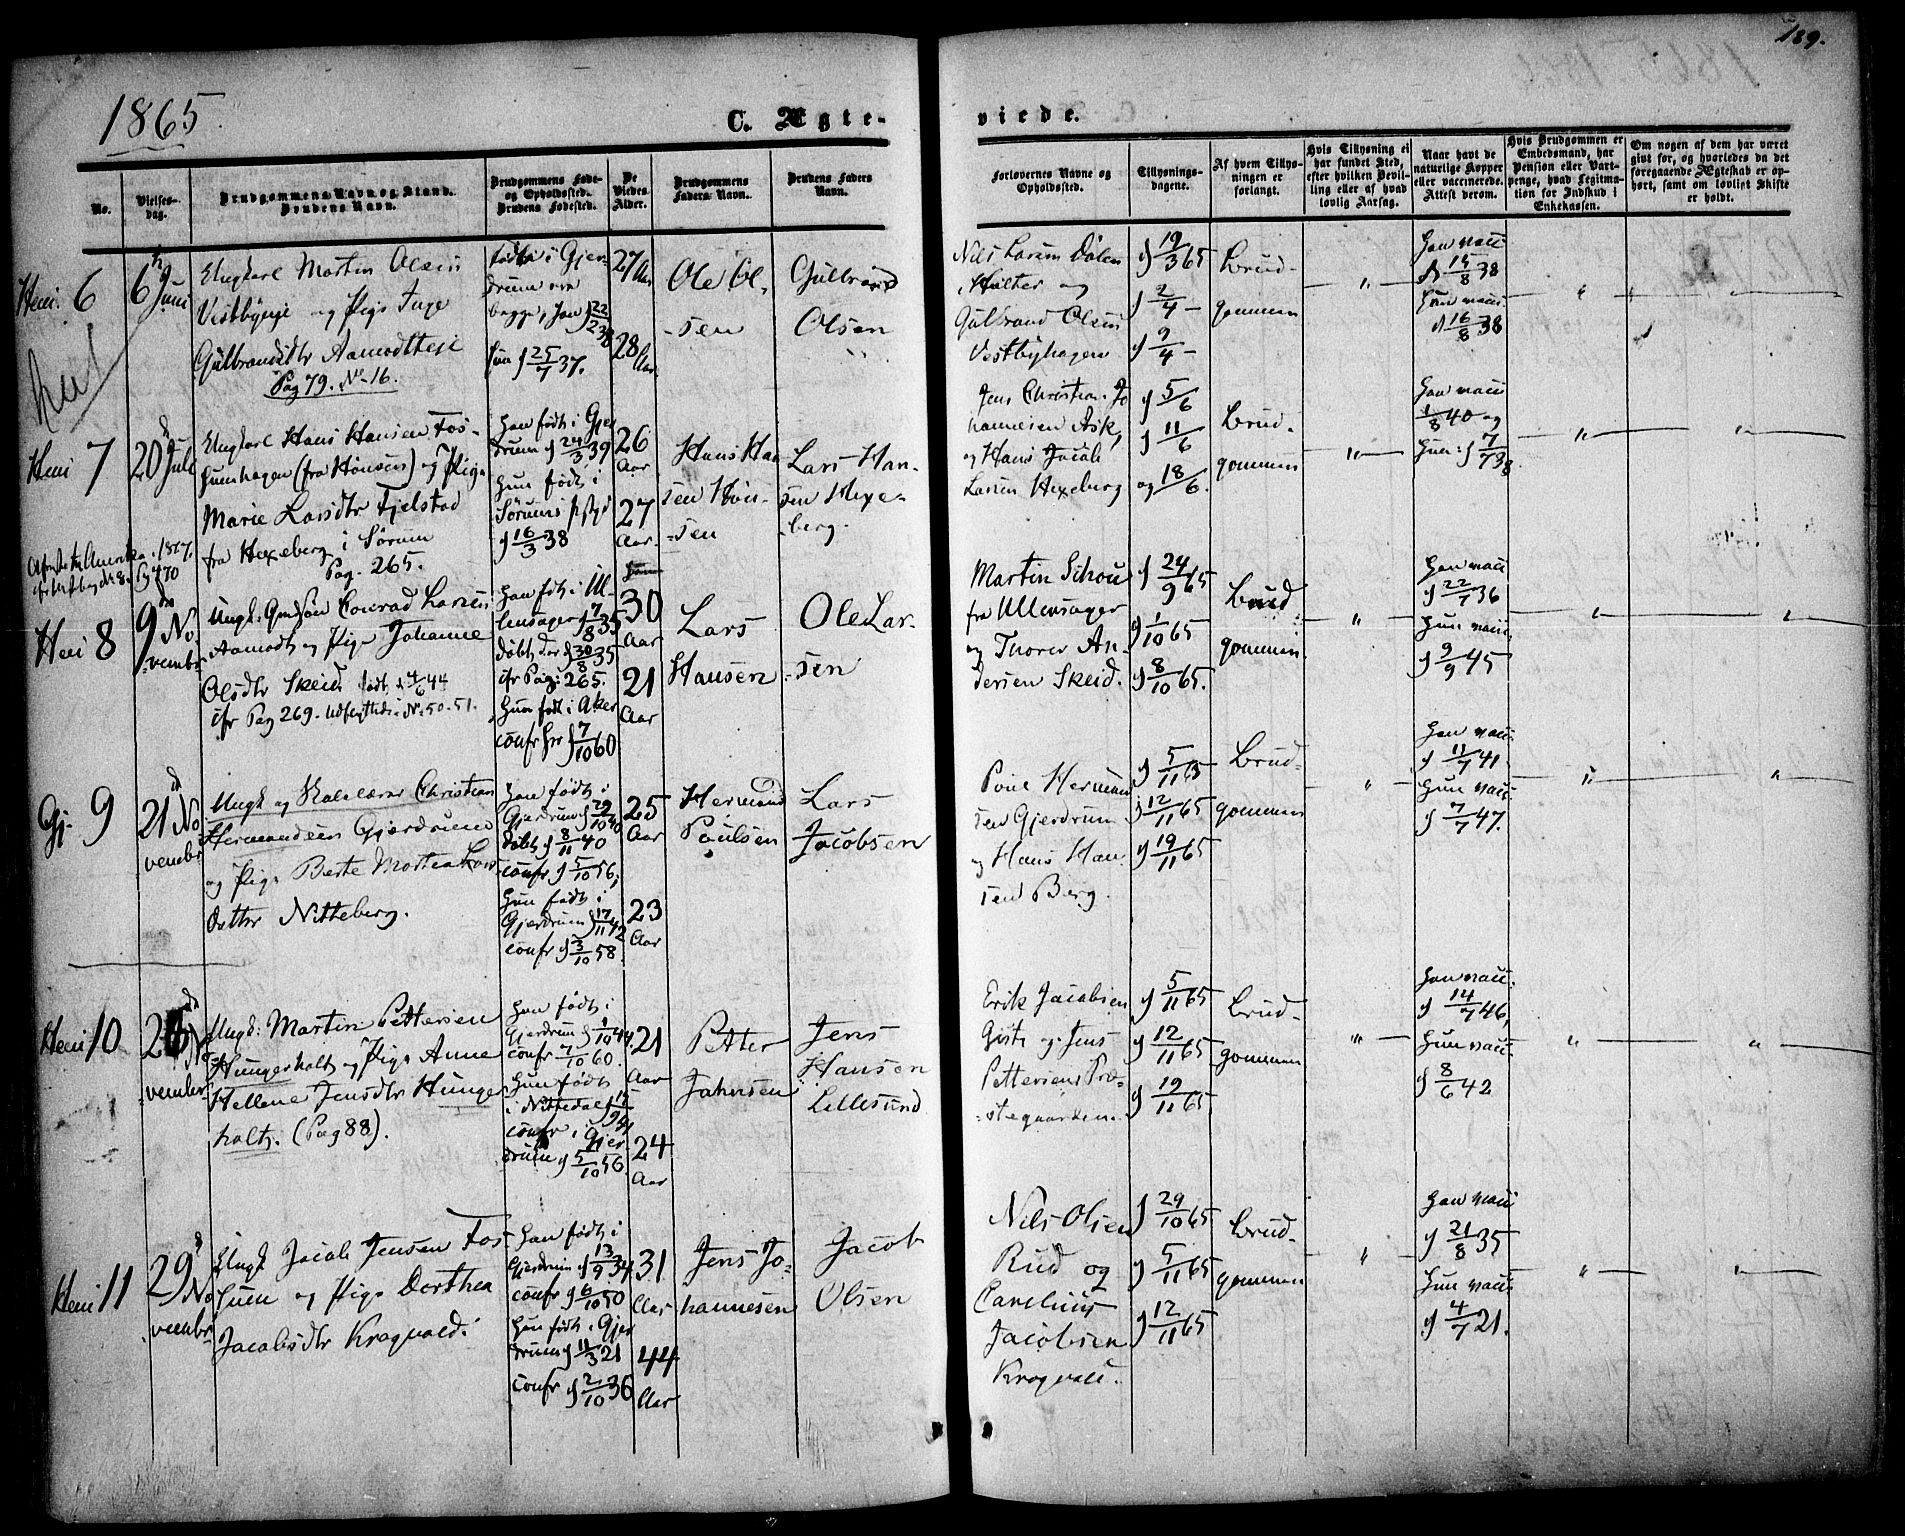 189.
1865
C. Ægte-
viede.
No.
Vielses-
dag.
Brudgommens Navn og Stand.
Brudens Navn.
Brudgommens Føde-
og Opholdssted.
Brudens Fødested.
De
Viedes
Alder.
Brudgommens
Faders Navn.
Brudens Faders
Navn.
Forlovernes Navne og
Opholdssted.
Tillysnings-
dagene.
Af hvem Tillys-
ningen er
forlangt.
Hvis Tillysning ei
har fundet Sted,
efter hvilken Bevil-
ling eller af hvad
lovlig Aarsag.
Naar havt de
naturlige Kopper
eller vaccinerede.
Attest derom.
Hvis Brudgommen er
Embedsmand, har
Pension eller Vart-
penge, hvad Legitima-
tion for Indskud i
Enkekassen.
Om nogen af dem har været
givt før, og hvorledes da det
foregaaende Ægteskab er op-
hørt, samt om lovligt Skifte
er holdt.
6
6 Juni
Ungkarl Martin Olsen
Vestbyeje og Pige Inge
Gulbrandsdtr Aamodteje
Pag 79. No 16.
født i Gjer-
drum
begge, han 22/2 38
hun 25/7 37.
27 Aar
28 Aar
Ole Ol-
sen
Gulbrand
Olsen
Nils Larsen Dølen
Holter og
Gulbrand Olsen
Vestbyhagen
19/3 65
2/4 –
9/4 –
Brud-
gommen
Han vacc
15/8 38
Hun vacc
16/8 38
7
20 Juli
Ungkarl Hans Hansen Fos-
humhagen (fra Hønsen) og Pige
Marie Larsdtr Fjelstad
fra Hexeberg i Sørum
Pag. 265.
Han født i Gjer
drum 24/3 39
hun født i
Sørums
16/3 38
26
Aar
27
Aar
Hans Han
sen Høn-
sen
Lars Han-
sen Hexe-
berg.
Jens Christian Jo
hannesen Ask,
og Hans Jacob
Larsen Hexeberg
5/6
11/6
og 18/6.
Brud-
gommen
Han vacc
1/8 40 og
Hun 7/7 38
8
9 No
vembr
Ungk. Conrad Larsen
Aamodt og Pige Johanne
Olsdtr Skeid. født 4/6 44
cfr Pag 269. Udflyttede No 50-51.
Han født i Ul-
lensager 7/8 35
døbt 30/8 35
cfr Pag. 265.
Hun født i Aker
confr 7/10 60
30
Aar
21
Aar
Lars
Hansen
Ole Lar-
sen
Martin Schou
fra Ullensager
og Thorer An-
dersen Skeid.
24/9 65
1/10 65
8/10 65.
Brud-
gommen
Han vacc
22/7 36
Hun vacc
9/9 45
Gj. 9
21 No
vembr
Ungk og Christian
Hermandsen Gjerdrum
og Pige Berte Mortea Lars-
datter Nitteberg.
Han født i
Gjerdrum 29/10 40
døbt 8/11 40
confr 5/10 56,
Hun født i
Gjerdrum 17/11 42
confr 3/10 58.
25
Aar
23
Aar
Hermand
Poulsen
Lars
Jacobsen
Poul Herman
sen Gjerdrum
og Hans Han
sen Berg.
5/11 65
12/11 65
19/11 65
Brud-
gommen
Han vacc
11/7 41
Hun vacc
7/7 47.
10
26 N
vembr
Ungk: Martin Pettersen
Hungerholt og Pige Anne
Hellene Jensdtr Hunger
holt. (Pag 88).
Han født i
Gjerdrum 1/10 44
confr 7/10 60.
Hun født
i Nittedal
confr i Gjer
drum 5/10 56
21
Aar
24
Aar
Petter
Johnsen
Jens
Hansen
Lillesund
Erik Jacobsen
og Jens
Pettersen Præ-
stegaarden.
5/11 65
12/11 65
19/11 65
Brud-
gommen
Han vacc.
14/7 46,
Hun vacc
8/6 42
11
29 No
vembr
Ungk Jacob Jensen Fos-
hum og Pige Dorthea
Jacobsdtr Krogvold.
Han født i
Gjerdrum 13/9 34
confr 6/10 50
Hun født i Gjer
drum 11/3 21
confr 2/10 36
31
Aar
44
Aar
Jens Jo-
hannesen
Jacob
Olsen
Nils Olsen
Rud og
Carelius
Jacobsen
Krogvold.
29/10 65
5/11 65
12/11 65
Brud-
gommen
Han vacc
21/8 35
Hun vacc
4/7 21.